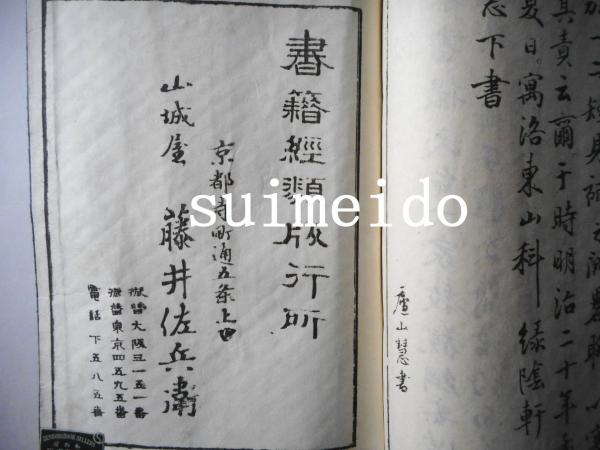 加一二
其責云爾于時明治二十年
夏日寓洛東山科緑陰軒
下書
廬山慧書
書籍經類版行所
京都寺町通五条上ル
山城屋 藤井佐兵衛
振替大阪三一五一番
振替東京四五九五番
電話下五八五番
suimeido